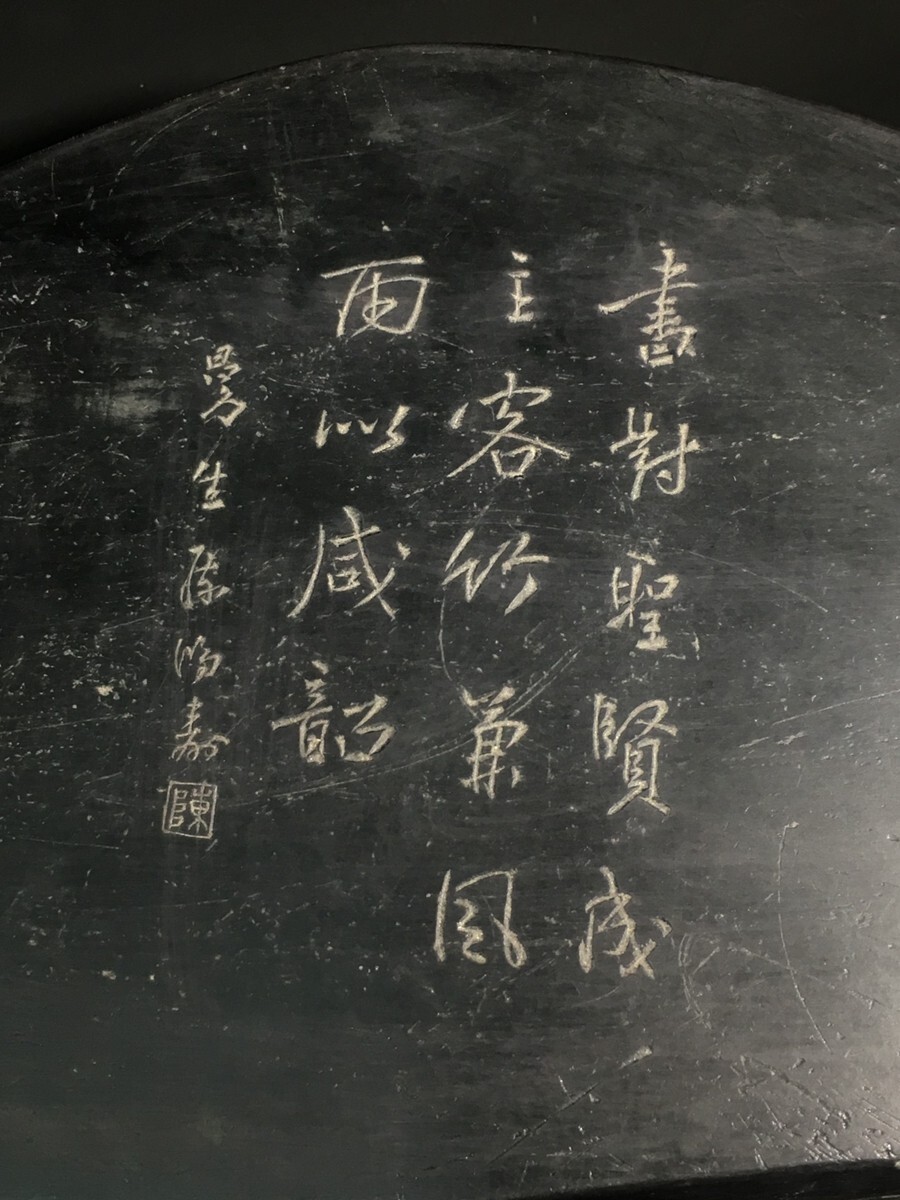 書對聖賢成
主客竹兼風
雨以咸韶
曼生陳鴻壽
陳